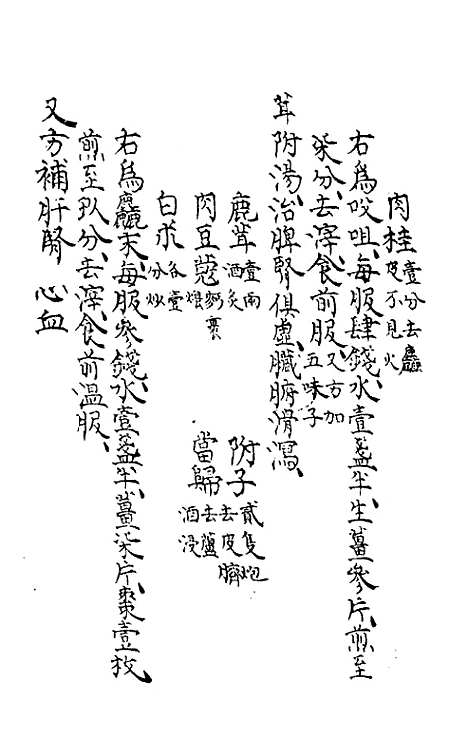 肉桂壹分去麤皮不見火
右爲㕮咀、每服肆錢、水壹盞半、生薑參片、煎至
柒分、去滓、食前服、又方加五味子
茸附湯、治脾腎俱虛、臟腑滑瀉、
鹿茸壹兩酒炙 附子貳隻炮去皮臍
肉豆蔻麪裹煨 當歸去蘆酒浸
白朮各壹分炒
右爲麤末、每服參錢、水壹盞半、薑柒片、棗壹枚
煎至捌分、去滓、食前溫服、
又方補肝腎 心血